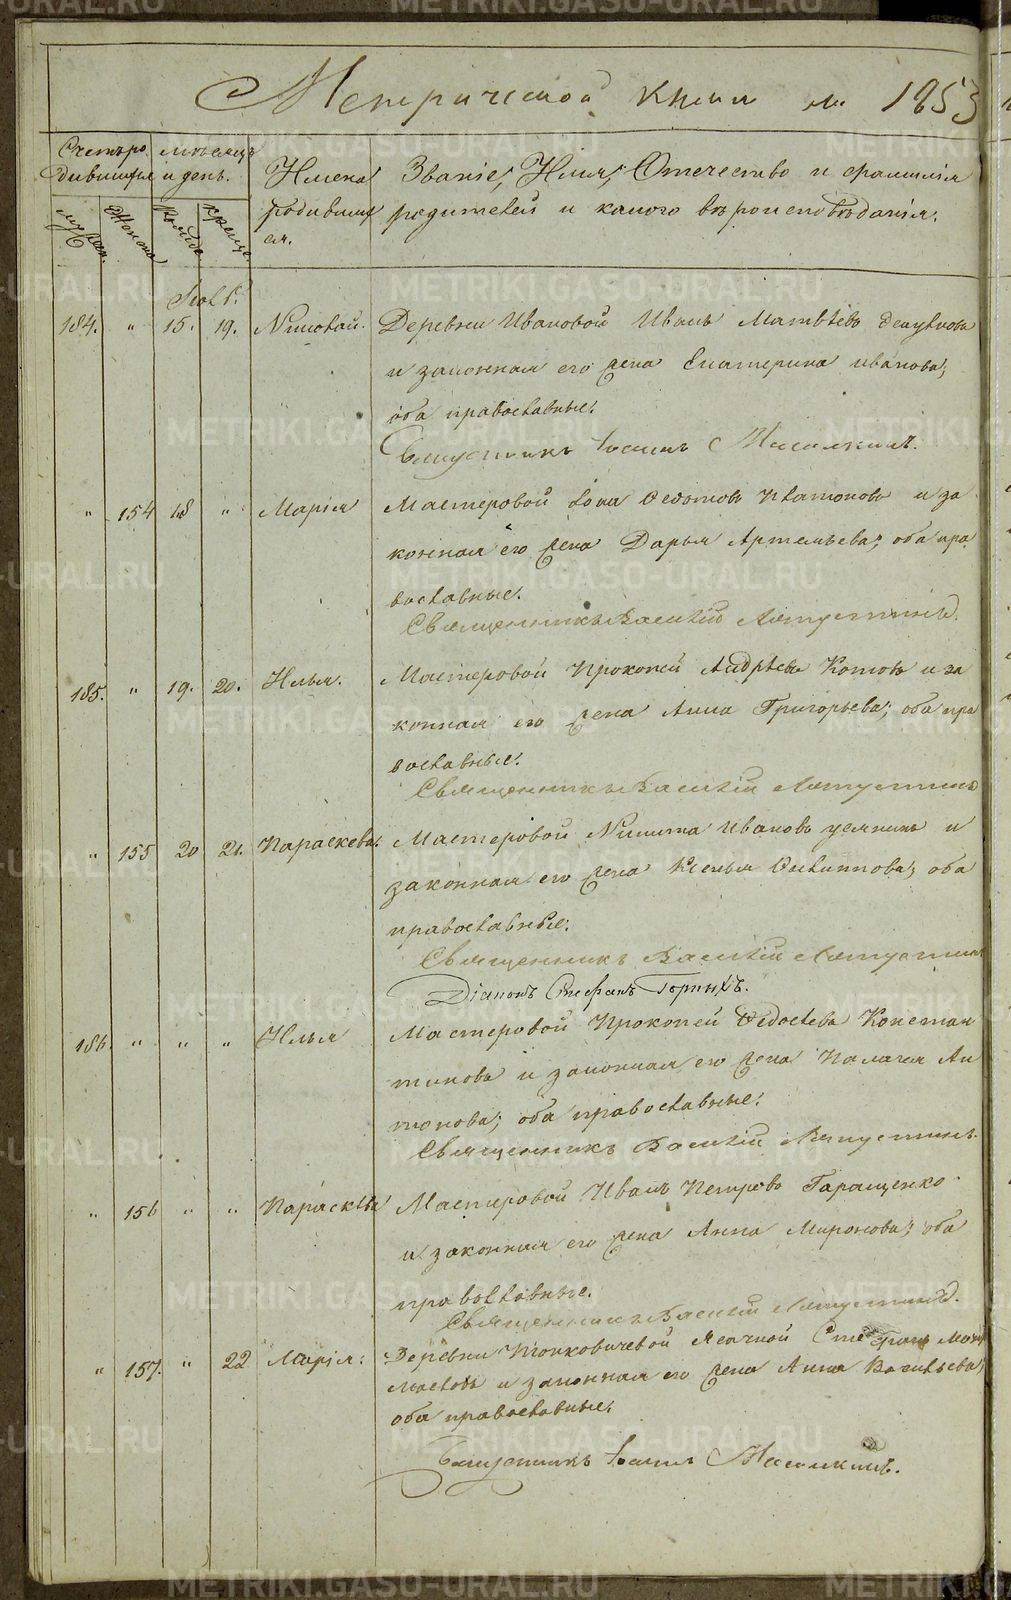 Метрической книги на 1853
Счетъ родившихся
мѣсяцъ и день.
Имена родившихся.
Званіе, Имя, Отечество и фамилія
родителей и какого вѣроисповѣданія.
муж. пол.
Женска
рожде
креще.
184. " 15. 19. Николай. Деревни Ивановой Иванъ Матвѣевъ
и законная его жена Екатерина Иванова;
оба православные.
Священникъ Іоаннъ
" 154 18 " Марія Мастеровой Іона Федотовъ Платоновъ и за
конная его жена Дарья Артемьева; оба пра
вославные.
Священникъ Василій
185. " 19. 20. Илья. Мастеровой Прокопей Андрѣевъ Котовъ и за
конная его жена Анна Григорьева; оба пра
вославные.
Священникъ Василій
" 155 20 21. Параскева. Мастеровой Никита Ивановъ и
законная его жена Ксенья; оба
православные.
Священникъ Василій
Діаконъ Стефанъ Горныхъ.
186. " " " Илья Мастеровой Прокопей Федосѣевъ Констан
тиновъ и законная его жена Палагея Ан
тонова; оба православные.
Священникъ Василій
" 156 " " Параскѣва Мастеровой Иванъ Петровъ Гаращенко
и законная его жена Анна Миронова; оба
православные.
Священникъ Василій
" 157. " 22 Марія. Деревни Стефанъ
и законная его жена Анна Васильева;
оба православные.
Священникъ Іоаннъ
METRIKI.GASO-URAL.RU